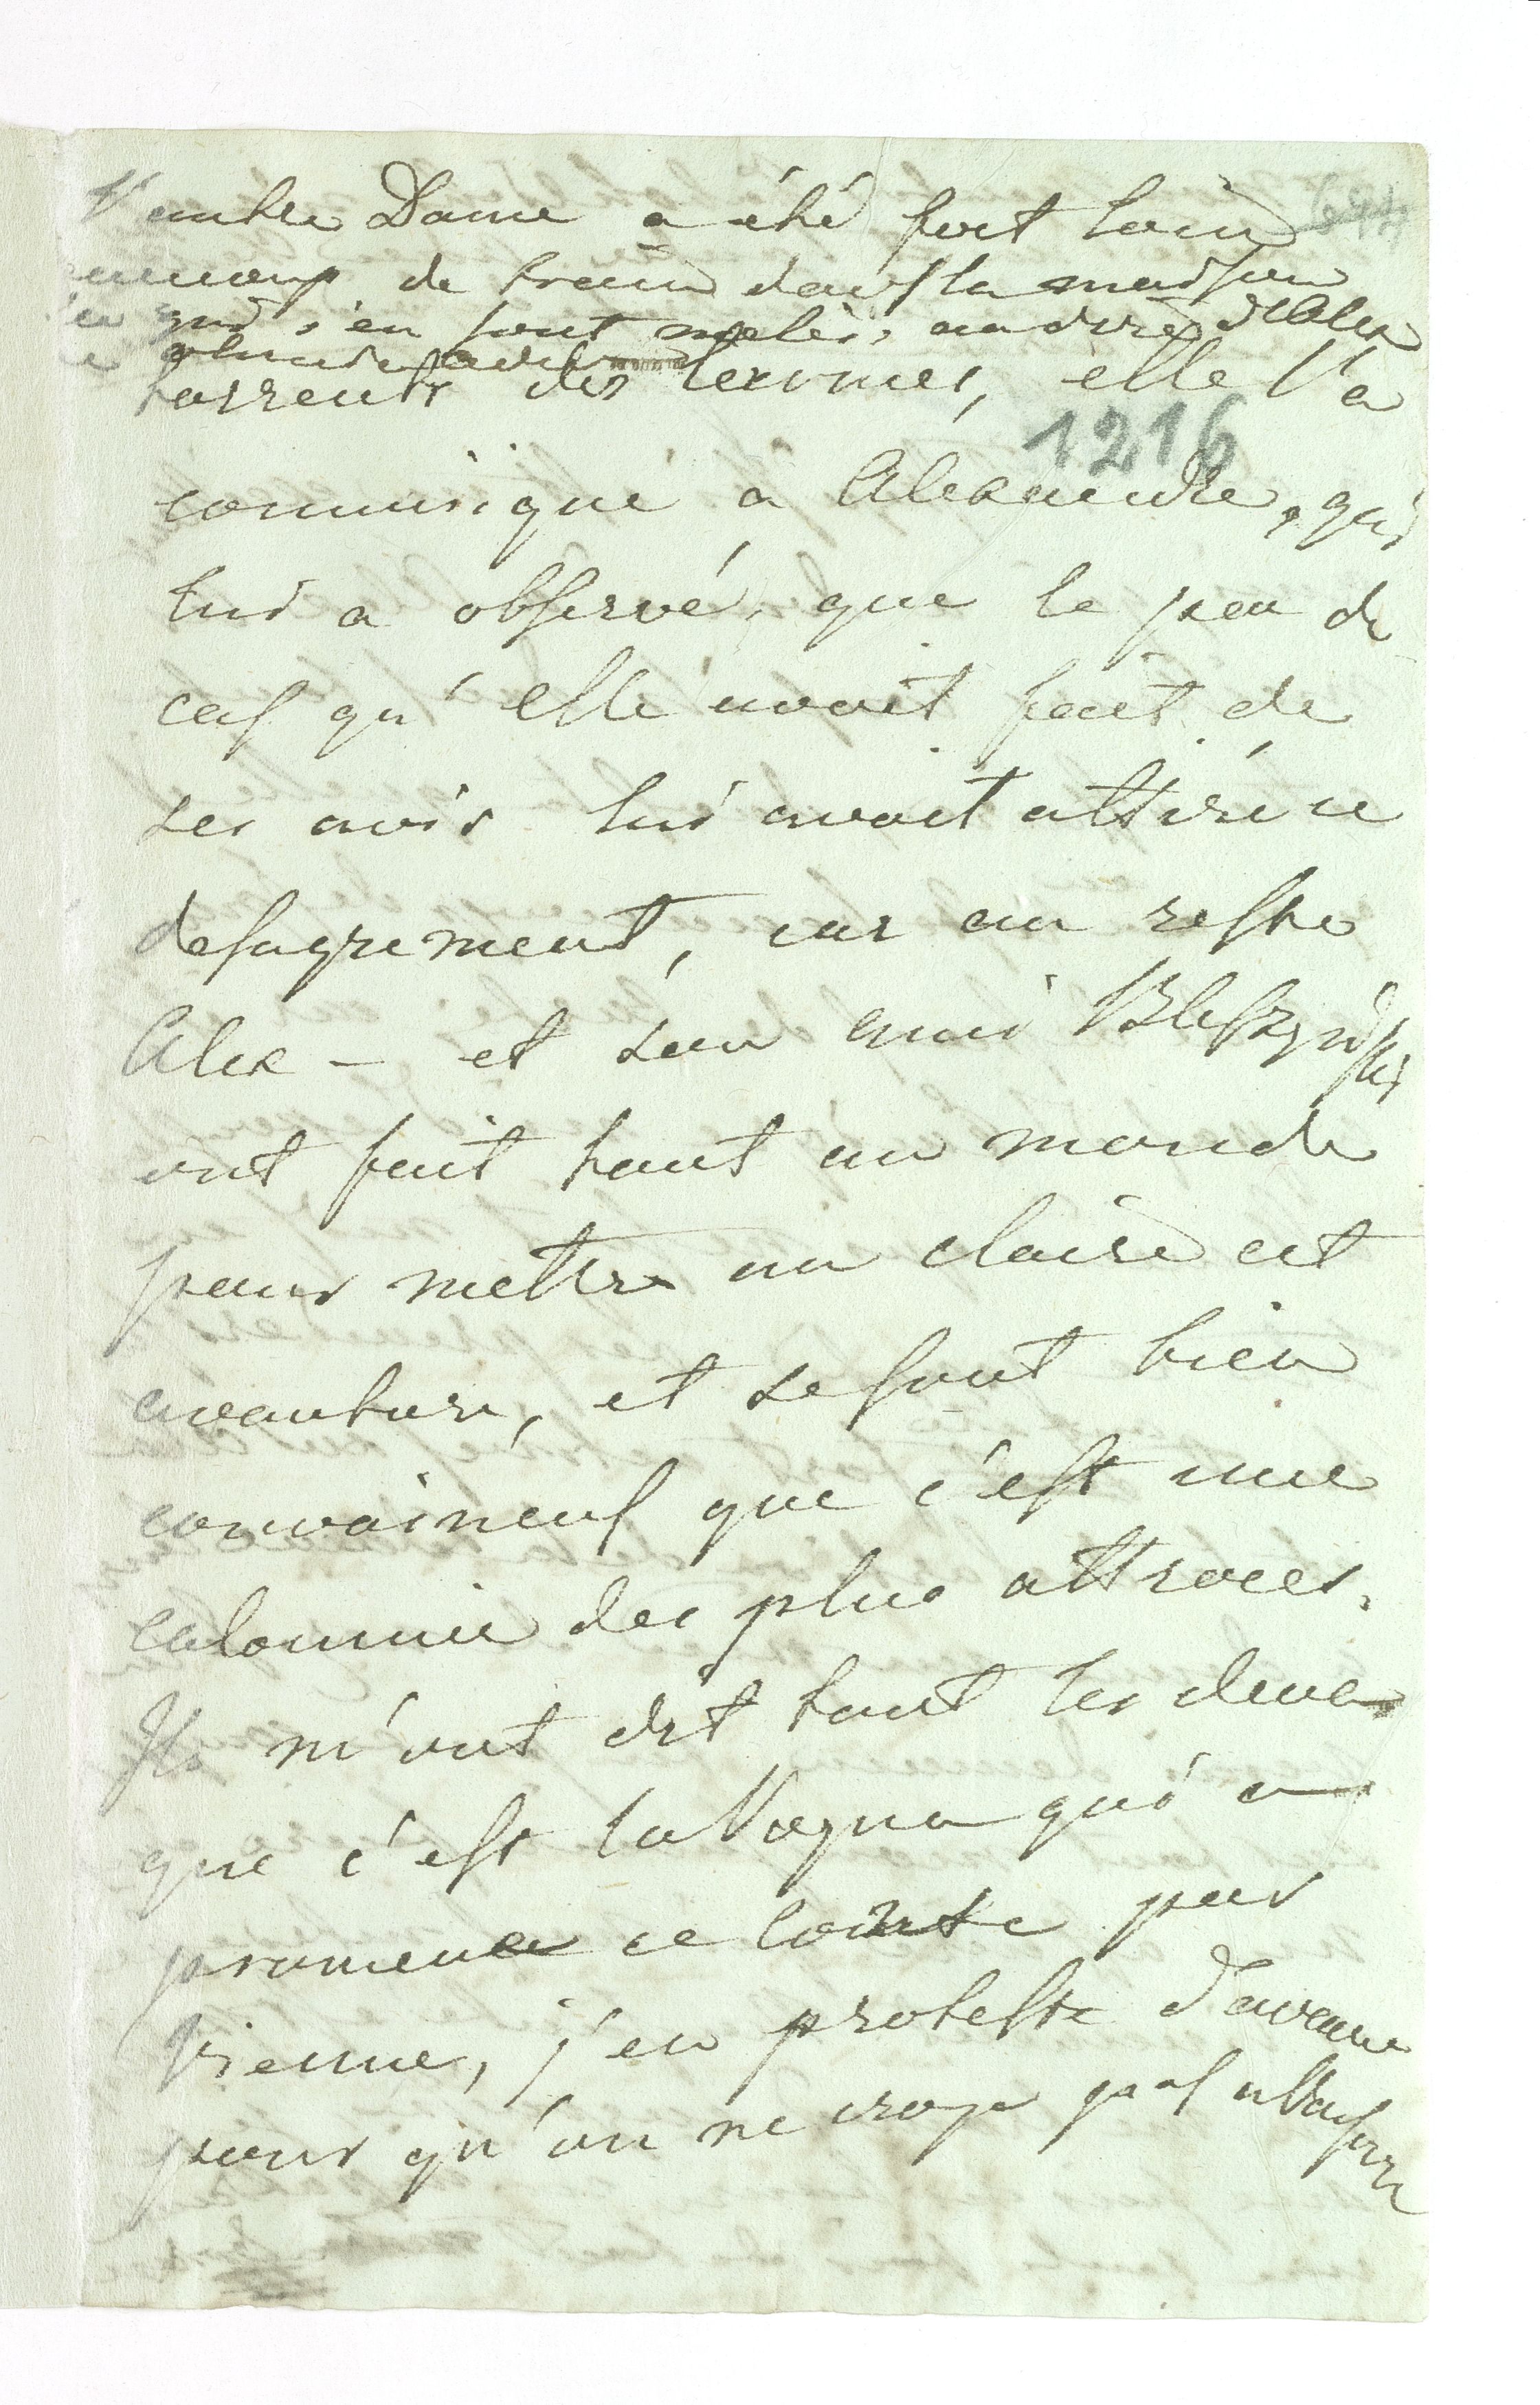 l'autre Dame a été fort loin
694
de train dans la maison
qui s'en sont melés, au dire d'Alex
torrents des lexomes, elle l'a
1216
comunique a Alexandre, qui
lui a observé, que le peu de
cas qu'Elle avoit fait de
ses avis lui avoit attiré ce
desagrement, car au reste
Alex – et son ami
ont fait tout au monde
pour mettre au clair cet
avanture, et se sont bien
convaincus que c'est une
calomnie des plus attroces.
Ils m'ont dit tout les deux
que c'est la Vogna qui a
promené ce conte par
Vienne, j'en proteste d'avance
pour qu'on ne croye pas